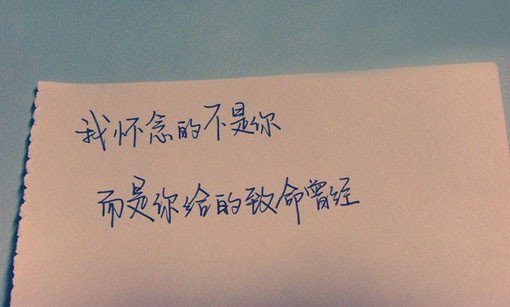 我怀念的不是你
而是你给的致命曾经